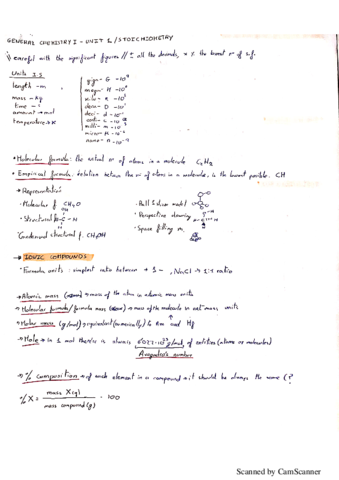 GENERAL CHEMISTRY I - UNIT 1/STOICHIOMETRY
careful with the significant figures // ± all the decimals, × the lowest nº of s.f.
Units I.S
length - m
mass - Kg
time - s
amount → mol
temperature → K
giga - G - 10⁹
mega - M - 10⁶
kilo - K - 10³
deca - D - 10¹
deci - d - 10⁻¹
centi - c - 10⁻²
milli - m - 10⁻³
micro - M - 10⁻⁶
nano - n - 10⁻⁹
• Molecular formula: the actual nº of atoms in a molecule C₂H₂
• Empirical formula: relation between the nº of atoms in a molecule, is the lowest possible. CH
→ Representations
• Molecular f. CH₄O
• Structural f.
Condensed structural f. CH₃OH
• Ball & stick model
• Perspective drawing
• Space filling m.
→ IONIC COMPOUNDS
• Formula units: simplest ratio between + -, NaCl → 1:1 ratio
→ Atomic mass → mass of the atom in atomic mass units
→ Molecular formula/formula mass → mass of the molecule in mass units
→ Molar mass (g/mol) → equivalent (numerically) to Am and Mf
→ Mole → in 1 mol there is always 6'022·10²³ of entities (atoms or molecules)
Avogadro's number
→ % composition → of each element in a compound it should be always the same (?
% X = mass X(g) / mass compound (g) · 100
Scanned by CamScanner